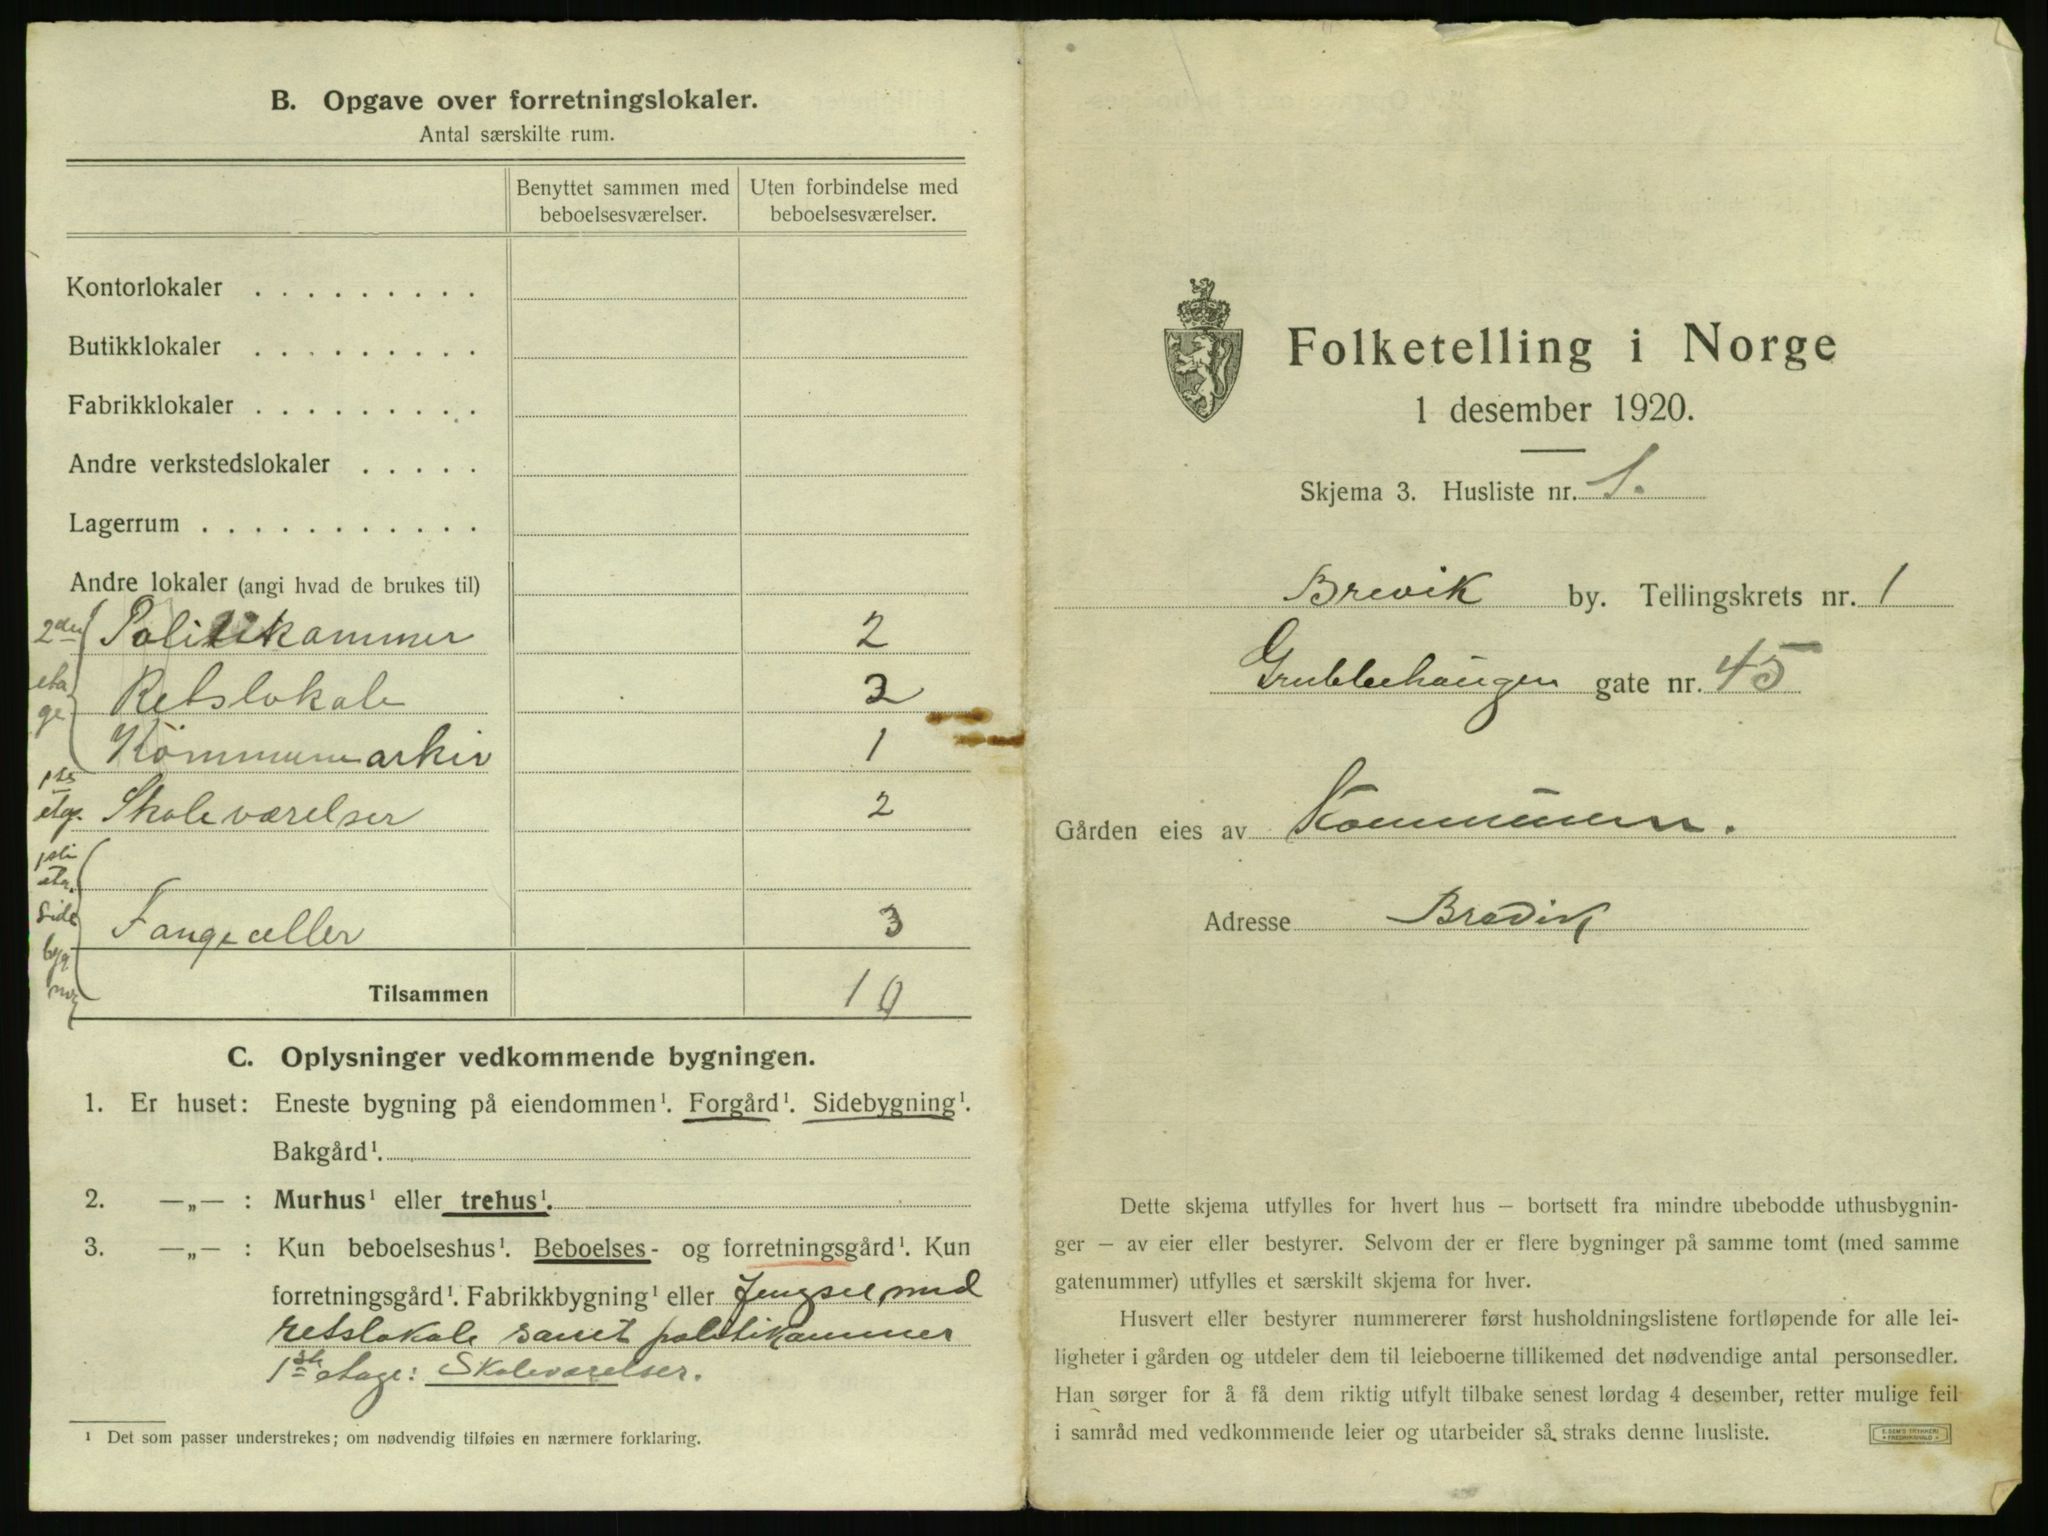 B. Opgave over forretningslokaler.
Antal særskilte rum.
Benyttet sammen med beboelsesværelser.
Uten forbindelse med beboelsesværelser.
Kontorlokaler . . . . . . . . .
Butikklokaler . . . . . . . . .
Fabrikklokaler . . . . . . . . .
Andre verkstedslokaler . . . . .
Lagerrum . . . . . . . . . . .
Andre lokaler (angi hvad de brukes til)
2den etage
Politikammer 2
Retslokale 2
Kommunearkiv 1
1ste etg. Skoleværelser 2
1ste eta. Side bygning
Fangeceller 3
Tilsammen 10
C. Oplysninger vedkommende bygningen.
1. Er huset: Eneste bygning på eiendommen¹. Forgård¹. Sidebygning¹.
Bakgård¹.
2. —„— : Murhus¹ eller trehus¹.
3. —„— : Kun beboelseshus¹. Beboelses- og forretningsgård¹. Kun
forretningsgård¹. Fabrikkbygning¹ eller Fengsel med
retslokale samt politikammer
1ste etage: Skoleværelser.
¹ Det som passer understrekes; om nødvendig tilføies en nærmere forklaring.
Folketelling i Norge
1 desember 1920.
Skjema 3. Husliste nr. 1.
Brevik by. Tellingskrets nr. 1
Grubbehaugen gate nr. 45
Gården eies av Kommunen.
Adresse Brevik
Dette skjema utfylles for hvert hus – bortsett fra mindre ubebodde uthusbygnin-
ger – av eier eller bestyrer. Selvom der er flere bygninger på samme tomt (med samme
gatenummer) utfylles et særskilt skjema for hver.
Husvert eller bestyrer nummererer først husholdningslistene fortløpende for alle lei-
ligheter i gården og utdeler dem til leieboerne tillikemed det nødvendige antal personsedler.
Han sørger for å få dem riktig utfylt tilbake senest lørdag 4 desember, retter mulige feil
i samråd med vedkommende leier og utarbeider så straks denne husliste.
E. SEM'S TRYKKERI
FREDRIKSHALD